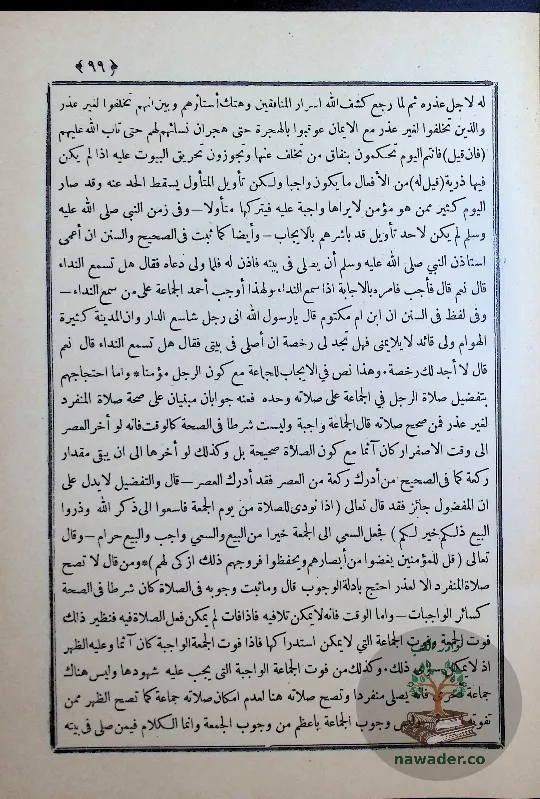 ﴿٩٩﴾
له لاجل عذره ثم لما رجع كشف الله اسرار المنافقين وهتك أستارهم وبين انهم تخلفوا لغير عذر
والذين تخلفوا لغير عذر مع الايمان عوتبوا بالهجرة حتى هجران نسائهم لهم حتى تاب الله عليهم
(فان قيل) فانتم اليوم تحكمون بنفاق من تخلف عنها وتجوزون تحريق البيوت عليه اذا لم يكن
فيها ذرية (قيل له) من الأفعال ما يكون واجبا ولكن تأويل المتأول يسقط الحد عنه وقد صار
اليوم كثير ممن هو مؤمن لايراها واجبة عليه فيتركها متأولا – وفى زمن النبي صلى الله عليه
وسلم لم يكن لاحد تأويل قد باشرهم بالايجاب – وأيضا كما ثبت فى الصحيح والسنن ان أعمى
استاذن النبي صلى الله عليه وسلم أن يصلى فى بيته فاذن له فلما ولى دعاه فقال هل تسمع النداء
قال نعم قال فأجب فامره بالاجابة اذا سمع النداء ولهذا أوجب أحمد الجماعة على من سمع النداء –
وفى لفظ فى السنن ان ابن ام مكتوم قال يارسول الله انى رجل شاسع الدار وان المدينة كثيرة
الهوام ولى قائد لايلايمنى فهل تجد لى رخصة ان أصلى فى بيتى فقال هل تسمع النداء قال نعم
قال لا أجد لك رخصة. وهذا نص فى الايجاب للجماعة مع كون الرجل مؤمنا * واما احتجاجهم
بتفضيل صلاة الرجل فى الجماعة على صلاته وحده فعنه جوابان مبنيان على صحة صلاة المنفرد
لغير عذر فمن صحيح صلاته قال الجماعة واجبة وليست شرطا فى الصحة كالوقت فانه لو أخر العصر
الى وقت الاصفرار كان آثما مع كون الصلاة صحيحة بل وكذلك لو أخرها الى ان يبقى مقدار
ركعة كما فى الصحيح من أدرك ركعة من العصر فقد أدرك العصر – قال والتفضيل لايدل على
ان المفضول جائز فقد قال تعالى (اذا نودى للصلاة من يوم الجمعة فاسعوا الى ذكر الله وذروا
البيع ذلكم خير لكم) فجعل السعى الى الجمعة خيرا من البيع والسعي واجب والبيع حرام – وقال
تعالى (قل للمؤمنين يغضوا من أبصارهم ويحفظوا فروجهم ذلك ازكى لهم) * ومن قال لا تصح
صلاة المنفرد الا لعذر احتج بادلة الوجوب قال وماثبت وجوبه فى الصلاة كان شرطا فى الصحة
كسائر الواجبات – واما الوقت فانه لايمكن تلافيه فاذا فات لم يمكن فعل الصلاة فيه فنظير ذلك
فوت الجمعة وفوت الجماعة التي لايمكن استدراكها فاذا فوت الجمعة الواجبة كان آثما وعليه الظهر
اذ لايمكن سوى ذلك. وكذلك من فوت الجماعة الواجبة التى يجب عليه شهودها وليس هناك
جماعة اخرى فانه يصلى منفردا وتصح صلاته هنا لعدم امكان صلاته جماعة كما تصح الظهر ممن
تفوته وجوب الجماعة باعظم من وجوب الجمعة وانما الكلام فيمن صلى فى بيته
nawader.co